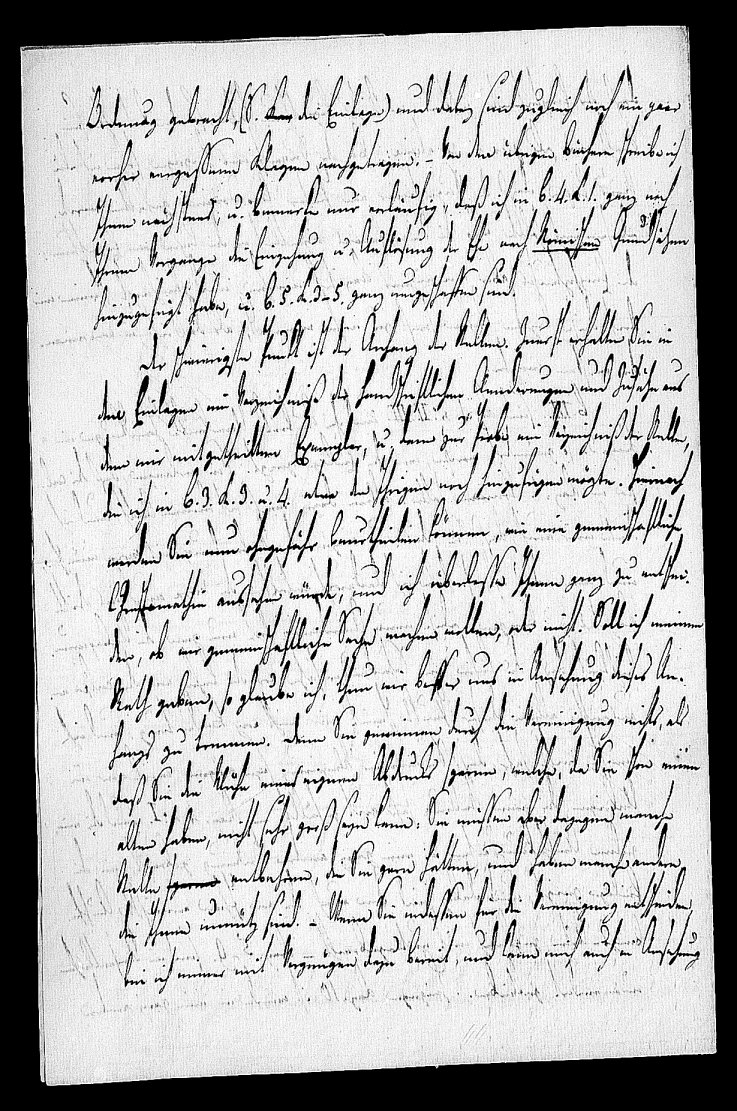 Ordnung gebracht, (S. die Einlage) und dabey sind zugleich noch ein paar
vorher vergessene Klagen nachgetragen. – Von den übrigen Büchern schreibe ich
Ihnen nächstens, u. bemerke nur vorläufig, daß ich in b. 4. k. 1. ganz nach
Ihrem Vorgange die Eingehung u. Auflösung der Ehe nach Römischen Grundsätzen
hinzugefügt habe, u. b. 5. k. 3–5. ganz umgeschaffen sind.
Der schwierigste Punkt ist der Anhang der Stellen. Zuerst erhalten Sie in
den Einlagen ein Verzeichniß der handschriftlichen Aenderungen und Zusätze aus
dem mir mitgetheilten Exemplar, u. dann zur Probe ein Verzeichniß der Stellen,
die ich in b. 3. k. 3. u. 4. etwa den Ihrigen noch hinzufügen mögte. Hiernach
werden Sie nun ohngefähr beurtheilen können, wie eine gemeinschaftliche
Chrestomathie aussehn würde, und ich überlasse Ihnen ganz zu entschei-
den, ob wir gemeinschaftliche Sache machen wollen, oder nicht. Soll ich meinen
Rath geben, so glaube ich, thun wir besser uns in Ansehung dieses An-
hangs zu trennen. Denn Sie gewinnen durch die Vereinigung nichts, als
daß Sie die Mühe eines eigenen Abdrucks sparen, welche, da Sie schon einen
alten haben, nicht sehr groß seyn kann; Sie müssen aber dagegen manche
Stelle entbehren, die Sie gern hätten, und haben manche andere
die Ihnen unnütz sind. – Wenn Sie indessen für die Vereinigung entscheiden,
bin ich immer mit Vergnügen dazu bereit, und kann mich auch in Ansehung